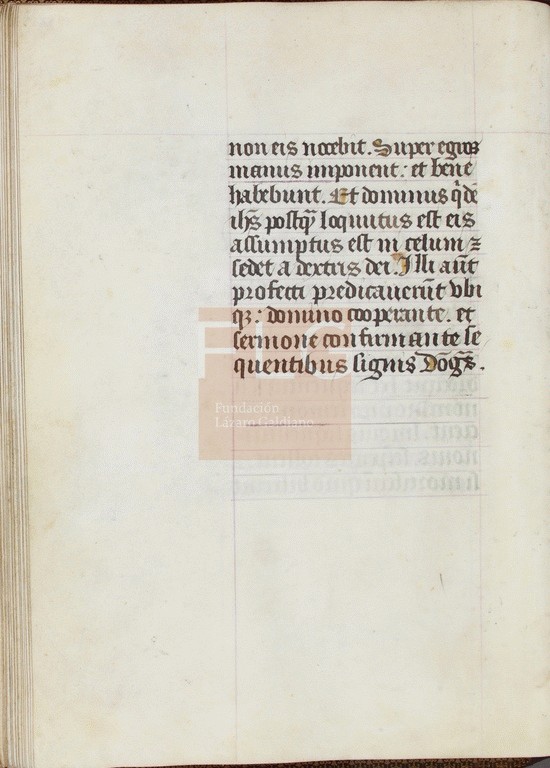 non eis nocebit. Super egros
manus imponent: et bene
habebunt. Et dominus q̇dē
ihs̄ postq̄ȝ loquutus est eis
assumptus est in celum ⁊
sedet a dextris dei. Illi aūt
profecti predicauerūt vbi
qȝ: domino cooperante. et
sermone confirmante se
quentibus signis
FLG
Fundación
Lázaro Galdiano